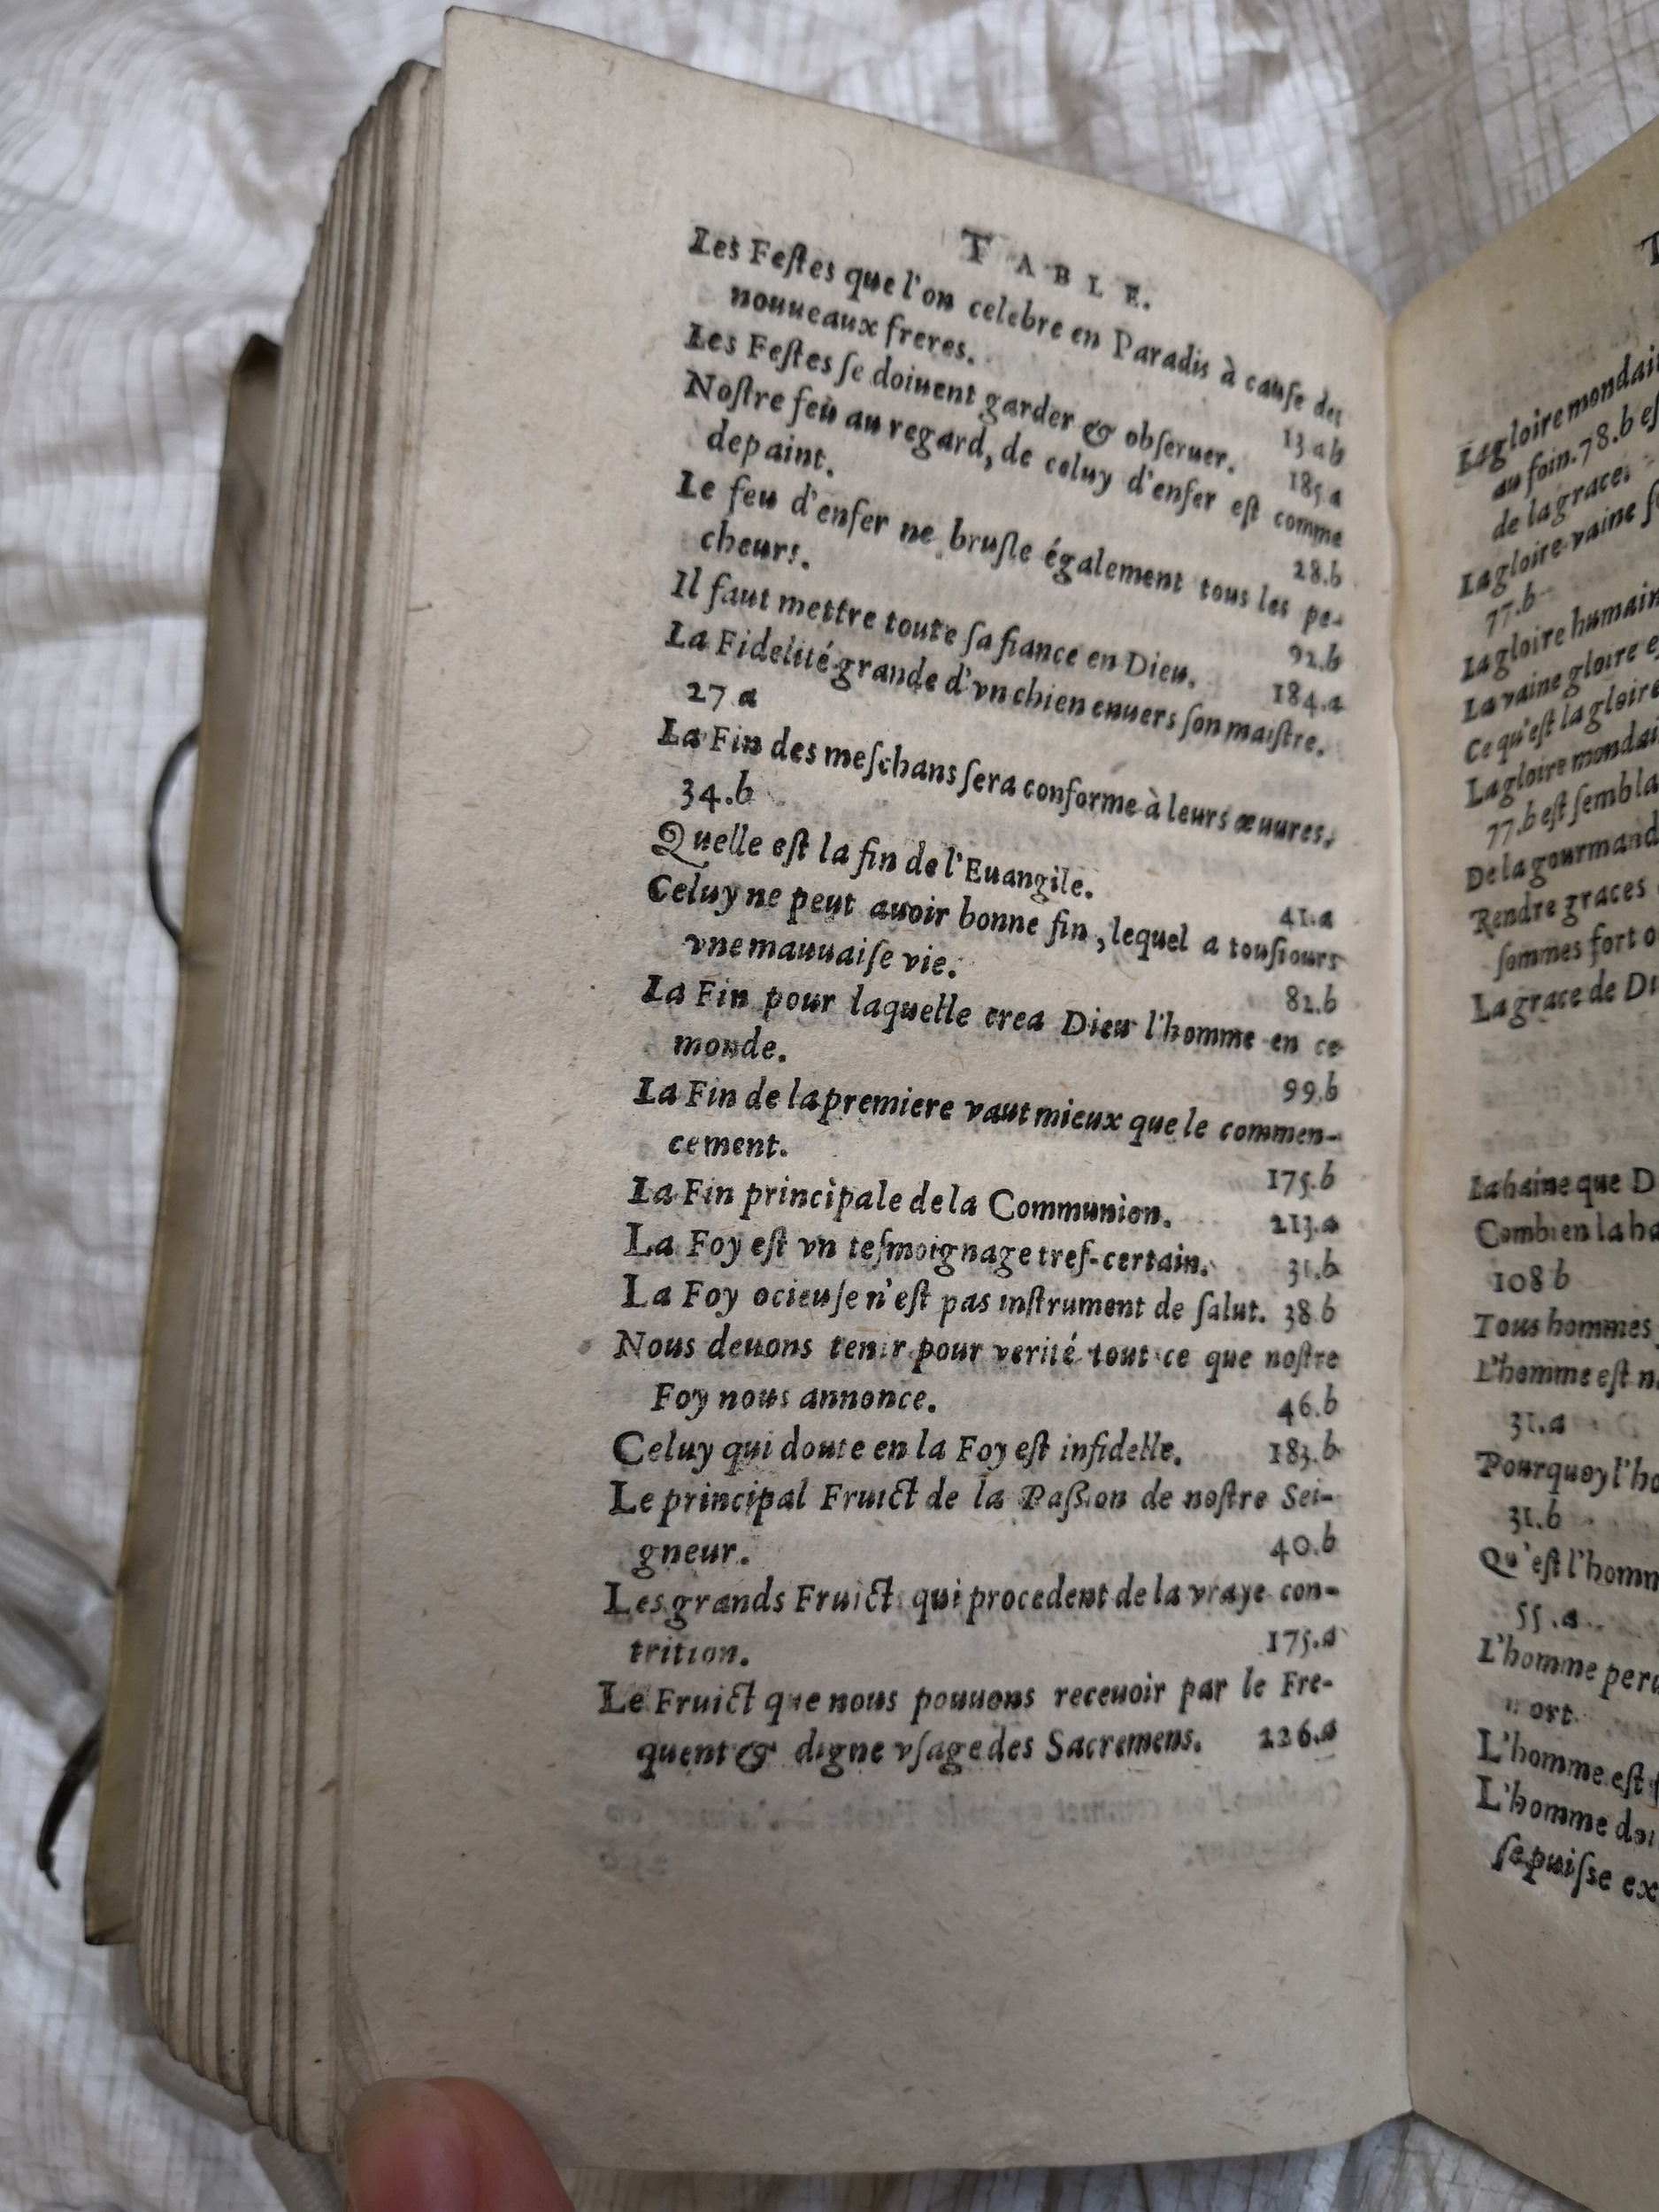 TABLE.
Les Feſtes que l'on celebre en Paradis à cauſe des
nouueaux freres. 13 a b
Les Feſtes ſe doiuent garder & obſeruer. 185 a
Noſtre feu au regard, de celuy d'enfer eſt comme
depaint. 28.b
Le feu d'enfer ne bruſle également tous les pe-
cheurs. 92.b
Il faut mettre toute ſa fiance en Dieu. 184.a
La Fidelité grande d'vn chien enuers ſon maiſtre.
27 a
La Fin des meſchans ſera conforme à leurs œuures.
34.b
Quelle eſt la fin de l'Euangile. 41.a
Celuy ne peut auoir bonne fin, lequel a touſiours
vne mauuaiſe vie. 82.b
La Fin pour laquelle crea Dieu l'homme en ce
monde. 99.b
La Fin de la premiere vaut mieux que le commen-
cement. 175.b
La Fin principale de la Communion. 213.a
La Foy eſt vn teſmoignage treſ-certain. 31.b
La Foy ocieuſe n'eſt pas inſtrument de ſalut. 38 b
Nous deuons tenir pour verité tout ce que noſtre
Foy nous annonce. 46.b
Celuy qui doute en la Foy eſt infidelle. 183.b
Le principal Fruict de la Paſſion de noſtre Sei-
gneur. 40.b
Les grands Fruict qui procedent de la vraye con-
trition. 175.a
Le Fruict que nous pouuons receuoir par le Fre-
quent & digne vſage des Sacremens. 226.a
La gloire mondai
au foin. 78.b eſ
de la grace.
La gloire vaine
77.b
La gloire humain
La vaine gloire e
Ce qu'eſt la gloire
La gloire mondai
77.b eſt ſembla
De la gourmand
Rendre graces
ſommes fort o
La grace de Di
La haine que D
Combien la ha
108 b
Tous hommes
L'homme eſt n
31.a
Pourquoy l'ho
31.b
Qu'eſt l'homm
55.a
L'homme per
mort.
L'homme eſt
L'homme doi
ſe puiſſe ex